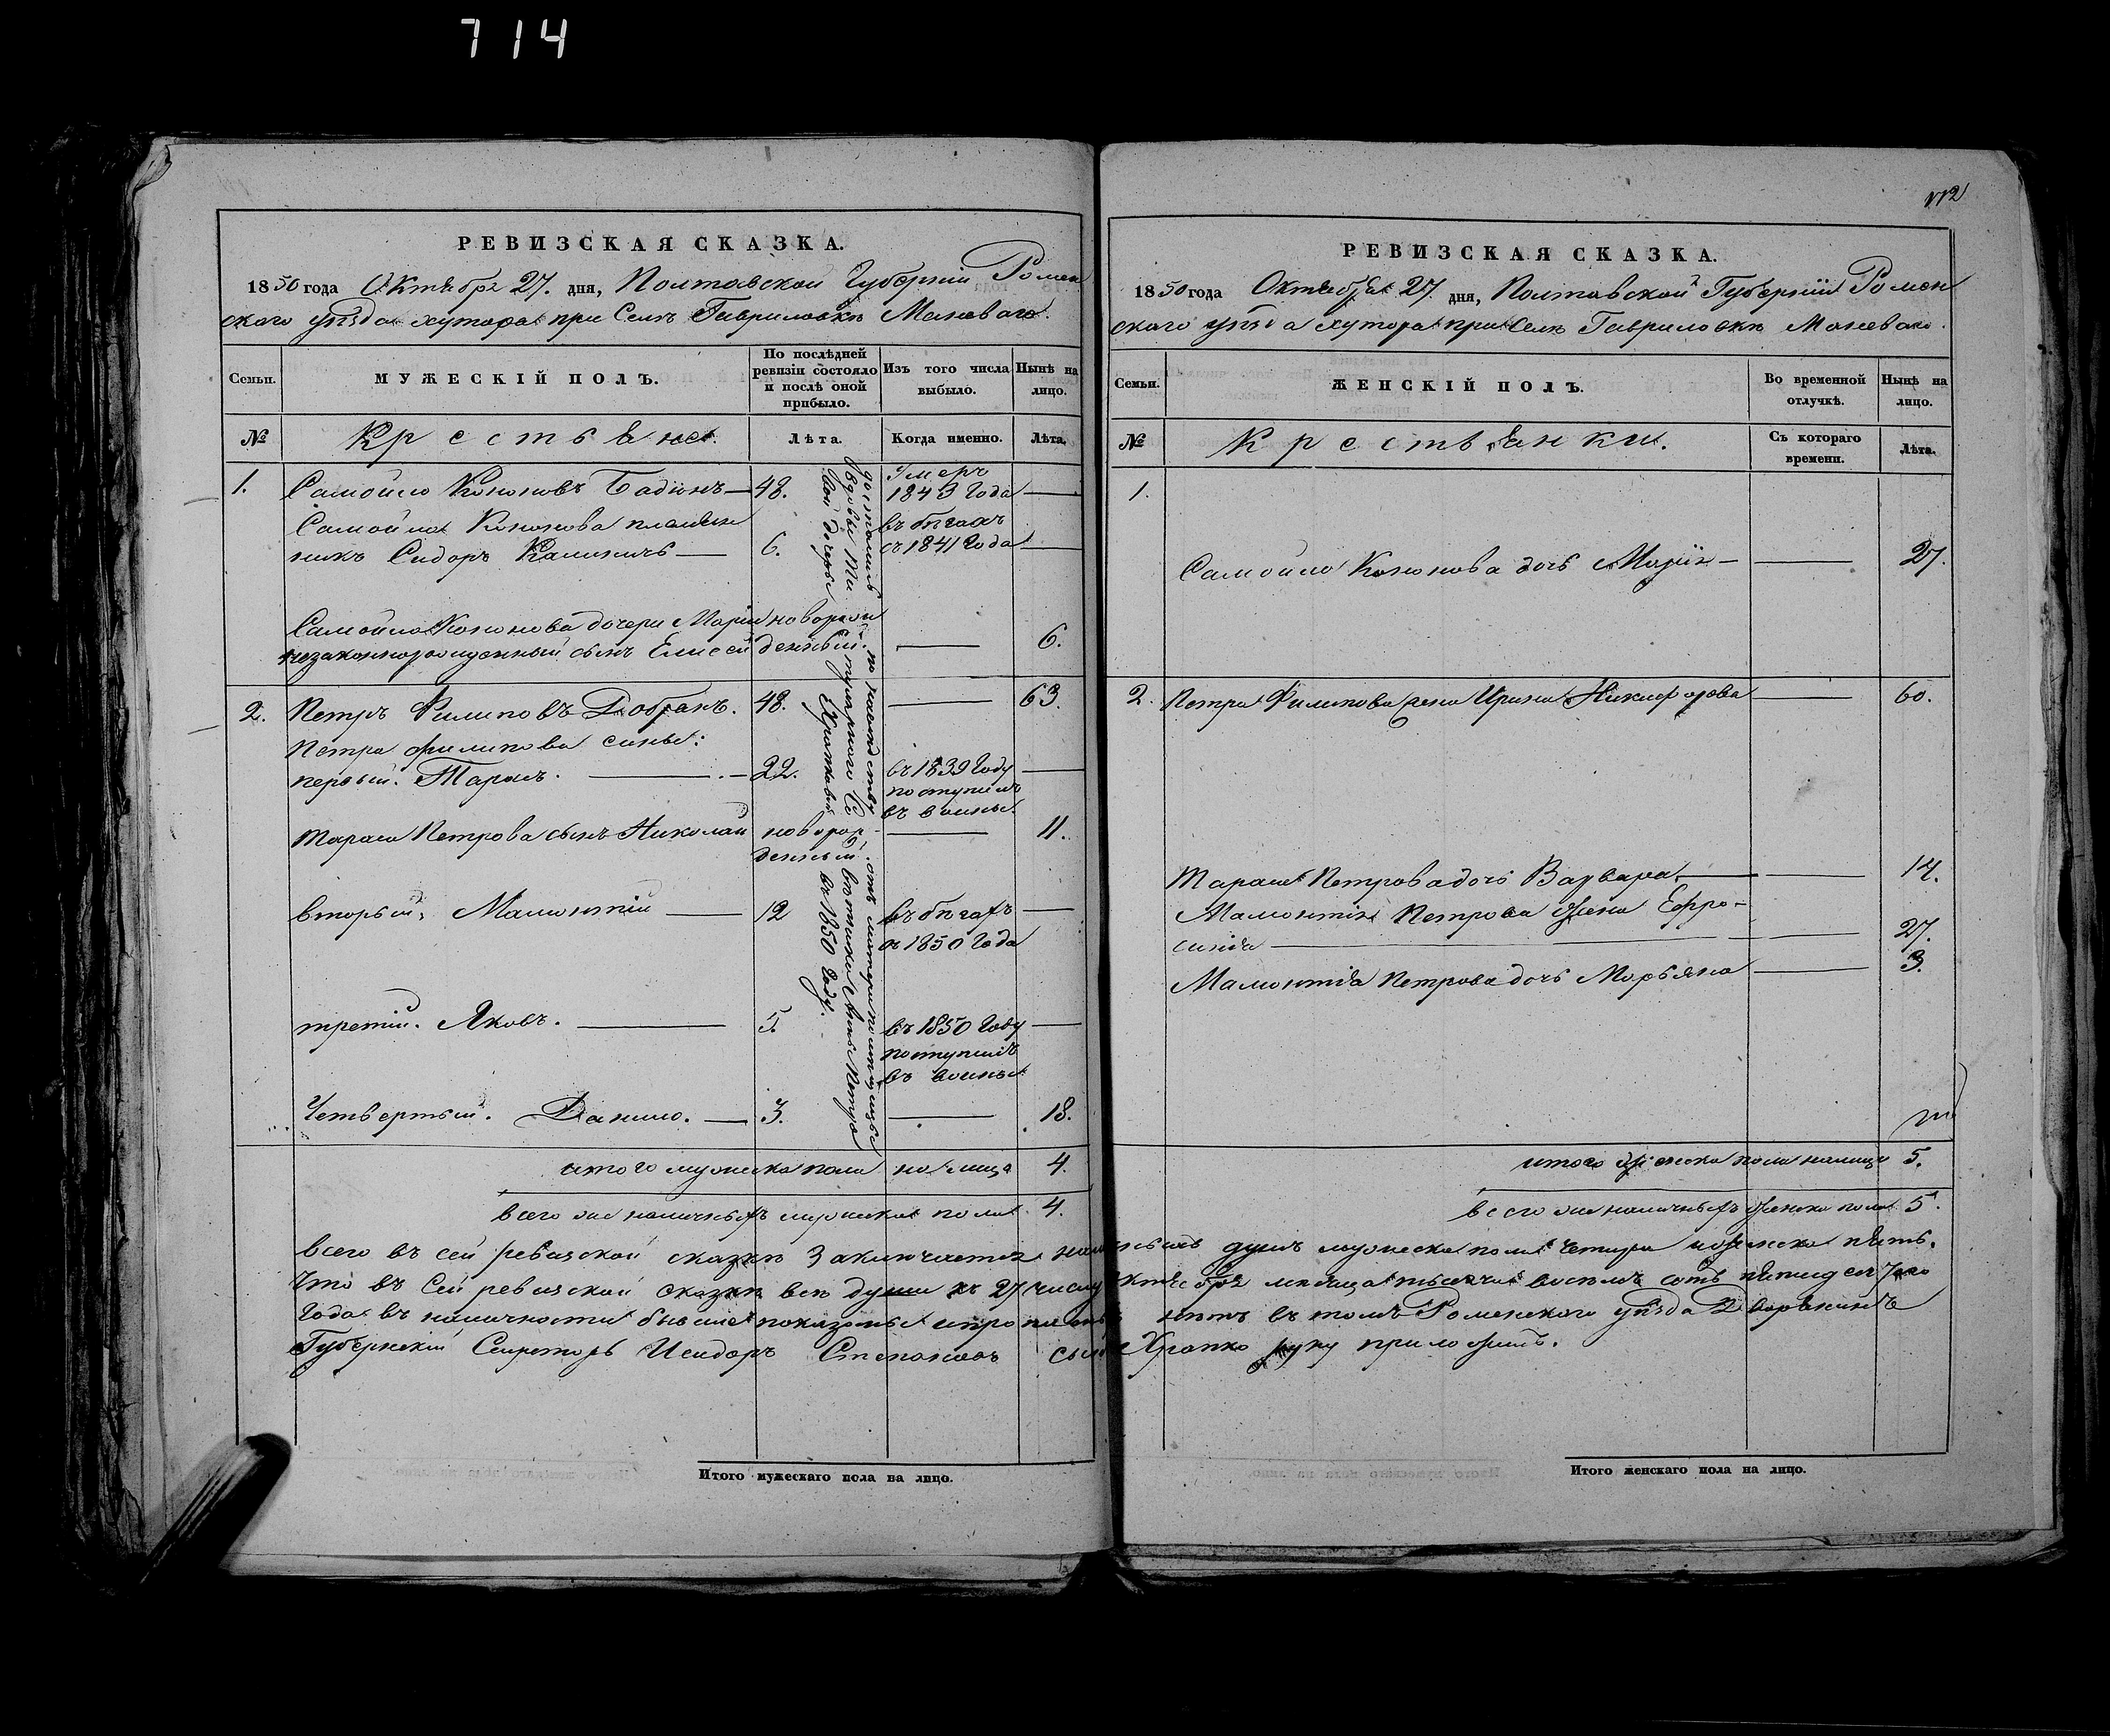 714
РЕВИЗСКАЯ СКАЗКА.
1850 года Октября 27. дня, Полтавской Губерніи Ромен
скаго уѣзда хутора при Селѣ Гавриловкѣ
Семьи.
МУЖЕСКІЙ ПОЛЪ.
По послѣдней ревизіи состояло и послѣ оной прибыло.
Изъ того числа выбыло.
Нынѣ на лицо.
№
Крестьяне.
Лѣта.
Когда именно.
Лѣта.
1. Самойло Кононовъ — 48. Умеръ 1843 года —
Самойла Кононова племян
никъ Сидоръ — 6. въ бѣгахъ съ 1841 года —
Самойла Кононова дочери Маріи новорож
незаконнорожденный сынъ Елисей денный. — 6.
2. Петръ Филиповъ 48. — 63.
Петра Филипова сыны:
первый. Тарасъ. — 22. въ 1839 году поступилъ въ воины. —
Тараса Петрова сынъ Николай новорож- денный. — 11.
вторый, Мамонтій — 12 въ бѣгахъ съ 1850 года —
третій. Яковъ. — 5. въ 1850 году поступилъ въ воины —
Четвертый. Данило. — 3. — 18.
по наслѣдству отъ матери
въ 1850 году.
итого мужеска пола на лицо 4.
всего же наличныхъ мужеска пола 4.
РЕВИЗСКАЯ СКАЗКА.
1850 года Октября 27. дня, Полтавской Губерніи Ромен
скаго уѣзда хутора при Селѣ Гавриловкѣ
Семьи.
ЖЕНСКІЙ ПОЛЪ.
Во временной отлучкѣ.
Нынѣ на лицо.
№
Крестьянки.
Съ котораго времени.
Лѣта.
1.
Самойло Кононова дочь Марія — — 27.
2. Петра Филипова жена Ирина Никифорова — 60.
Тараса Петрова дочь Варвара — — 14.
Мамонтія Петрова жена Ефро-
синія — — 27.
Мамонтія Петрова дочь Марьяна — 3.
итого женска пола налицо 5.
всего же наличныхъ женска пола 5.
всего въ сей ревизской сказкѣ заключается наличныхъ душъ мужеска пола четыри женска пять.
Что въ Сей ревизской сказкѣ всѣ души къ 27 числу Октября мѣсяца тысяча восемь сотъ пятидесятаго
года въ наличности бывшіе показаны и нѣтъ въ томъ Роменскаго уѣзда Дворянинъ
Губернскій Секретарь Исидоръ Степановъ сынъ Храпко руку приложилъ.
Итого мужескаго пола на лицо.
Итого женскаго пола на лицо.